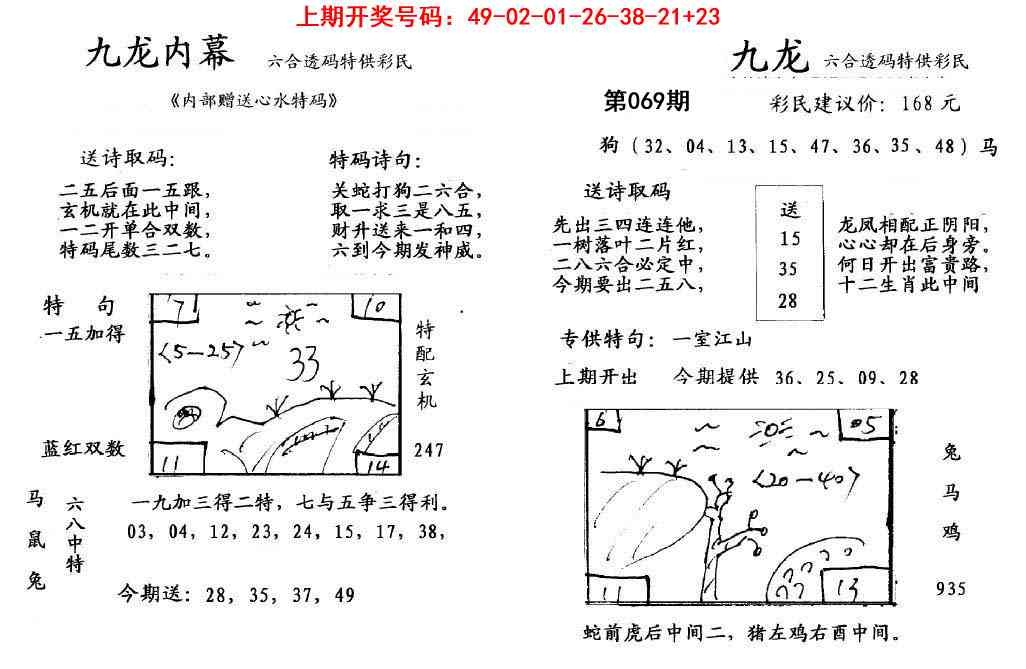 上期开奖号码：49-02-01-26-38-21+23
九龙内幕 六合透码特供彩民
《内部赠送心水特码》
送诗取码：
二五后面一五跟，
玄机就在此中间，
一二开单合双数，
特码尾数三二七。
特码诗句：
关蛇打狗二六合，
取一求三是八五，
财升送来一和四，
六到今期发神威。
特 句
一五加得
蓝红双数
17
10
(5-25)
33
11
14
特配玄机
247
马鼠兔
六八中特
一九加三得二特，七与五争三得利。
03，04，12，23，24，15，17，38，
今期送：28，35，37，49
九龙 六合透码特供彩民
第069期 彩民建议价：168元
狗（32、04、13、15、47、36、35、48）马
送诗取码
先出三四连连他，
一树落叶二片红，
二八六合必定中，
今期要出二五八，
送
15
35
28
龙凤相配正阴阳，
心心却在后身旁。
何日开出富贵路，
十二生肖此中间
专供特句：一室江山
上期开出 今期提供 36、25、09、28
6
5
(20-40)
11
13
兔
马
鸡
935
蛇前虎后中间二，猪左鸡右酉中间。